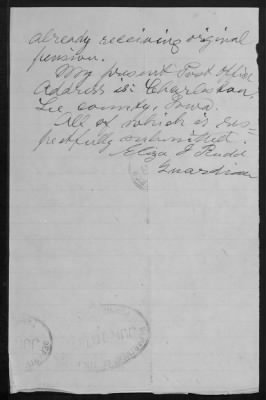 already receiving original
pension.
My present Post Office
Address is: Charleston,
Lee, county, Iowa.
All of which is res-
pectfully submitted.
Eliza J Rudd
Guardian